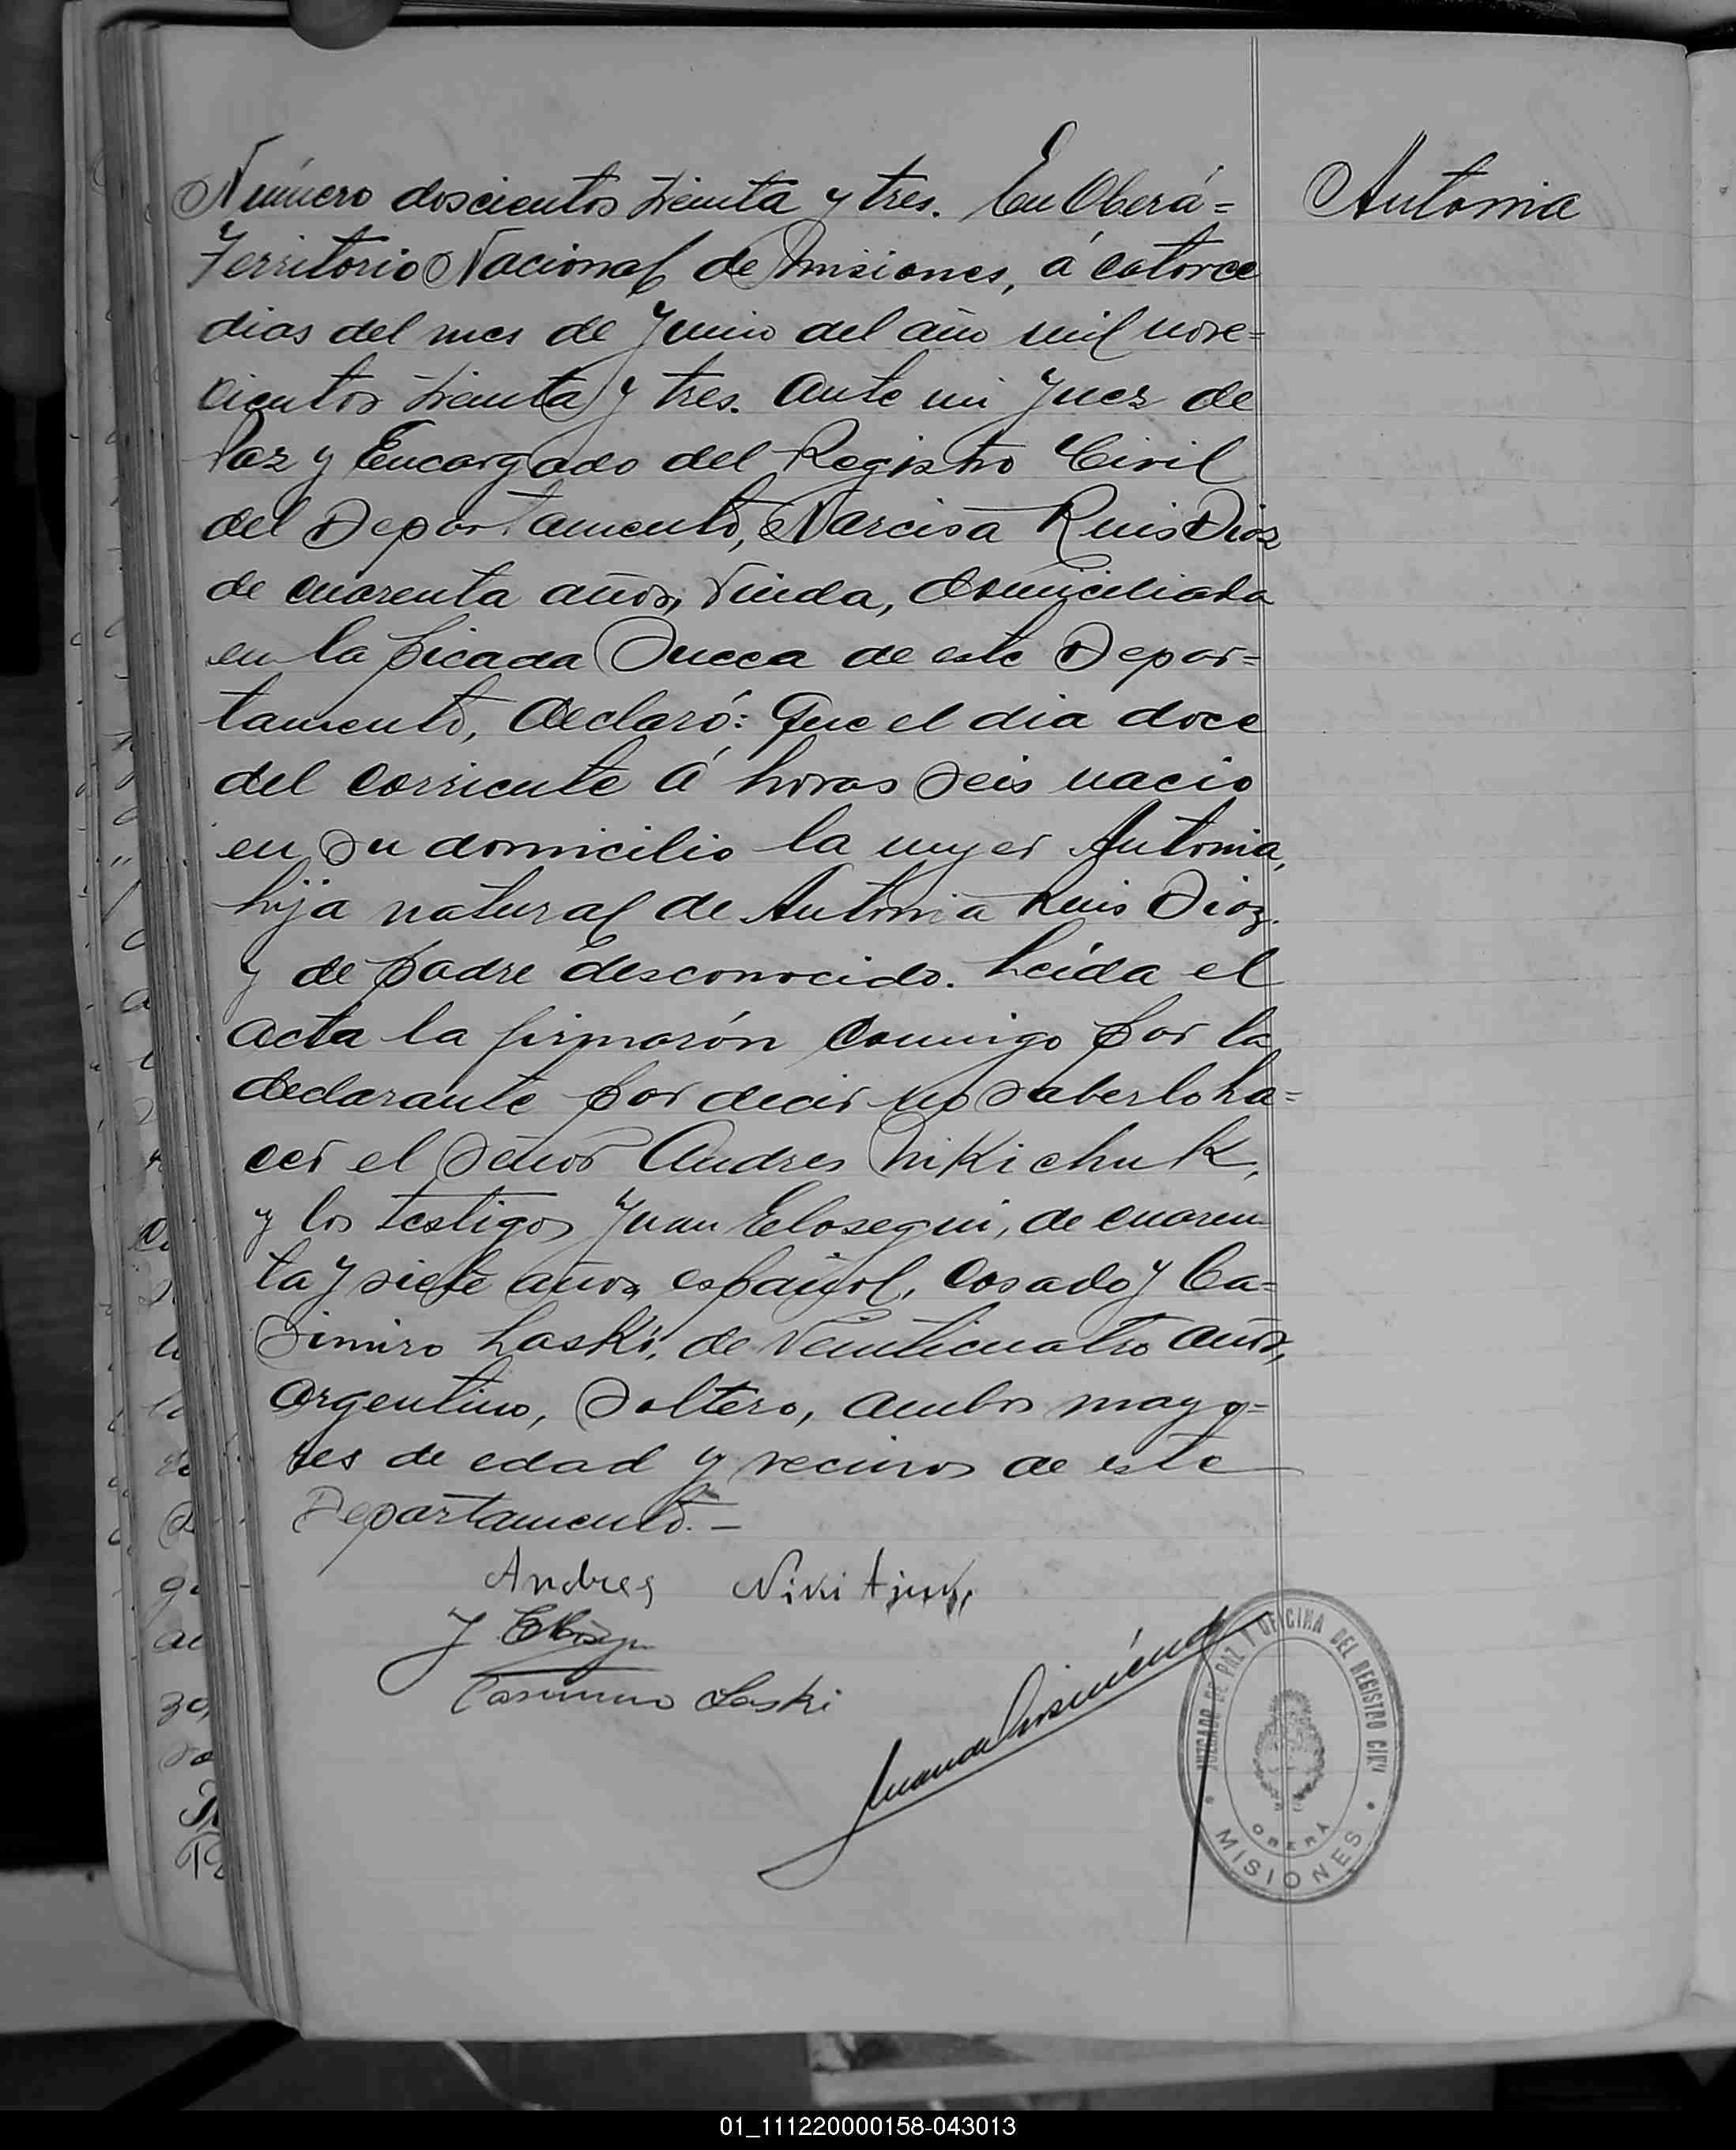 Número doscientos treinta y tres. En Oberá=
Antonia
Territorio Nacional de Misiones, á catorce
dias del mes de Junio del año mil nove=
cientos treinta y tres. Ante mi Juez de
Paz y Encargado del Registro Civil
del Departamento, Narcisa Ruis Dias
de cuarenta años, viuda, domiciliada
en la picada Sueca de este Depar=
tamento, declaró: Que el dia doce
del corriente á horas seis nacio
en su domicilio la mujer Antonia,
hija natural de Antonia Ruis Diaz.
y de padre desconocido. Leída el
acta la firmarón conmigo por la
declarante por decir no saberlo ha=
cer el señor Andres Nikichuk,
y los testigos Juan Elosegui, de cuaren
ta y siete años, español, casado y Ca=
simiro Laski, de veinticuatro años,
argentino, soltero, ambos mayo=
res de edad y vecinos de este
Departamento.—
Andres
Casimiro Laski
JUZGADO DE PAZ Y OFICINA DEL REGISTRO CIVIL
OBERÁ
MISIONES
01_111220000158-043013